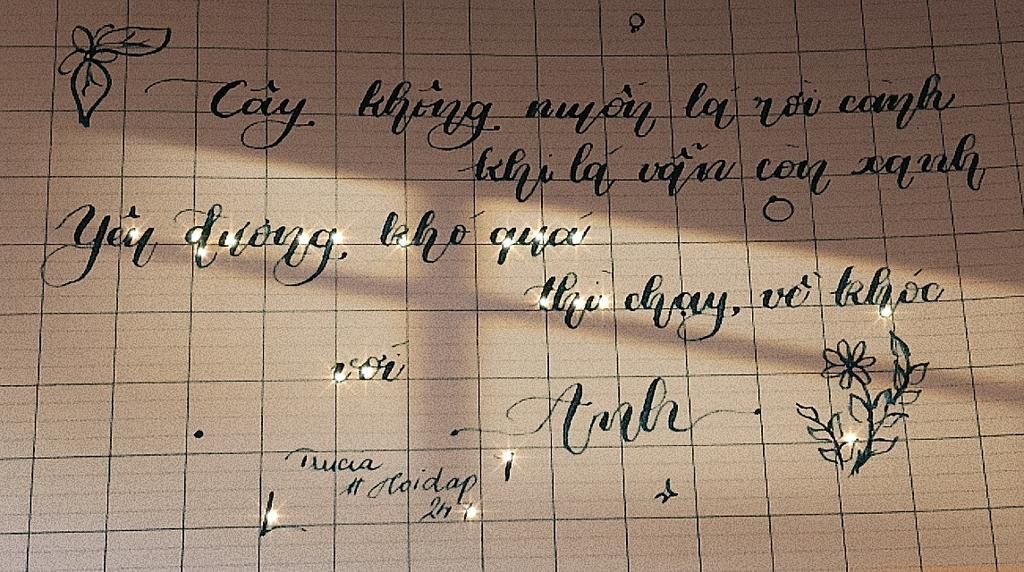 Cây không muốn lá rời cành
khi lá vẫn còn xanh
Yên đương, khó quá
thì chạy, về khóc
với
Anh
# Hoidap
247